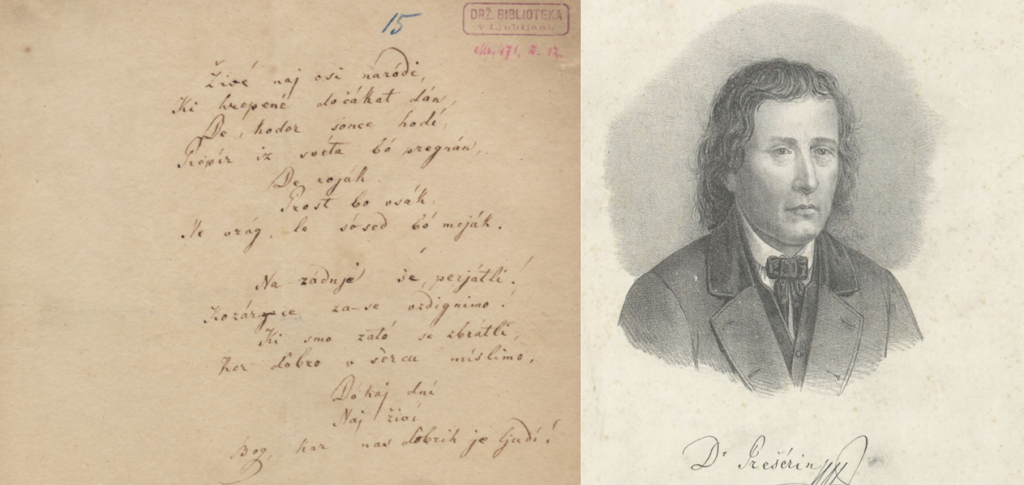 15
DRŽ. BIBLIOTEKA
v Ljubljani
Živé naj vsi naródi,
Ki hrepené dočákat dán,
De, koder sonce hodi,
Prepír iz svéta bó pregnán,
De roják
Prost bo vsák,
Ne vrág, le sósed bó meják.
Na zádnje še, perjátli!
Kozárce za-se vzdignimo!
Ki smo zató se zbratli,
Ker dobro v sercu mislimo,
Dókaj dni
Naj živí
Bog, kar nas dobrih je ljudi!
Dr Prešérin